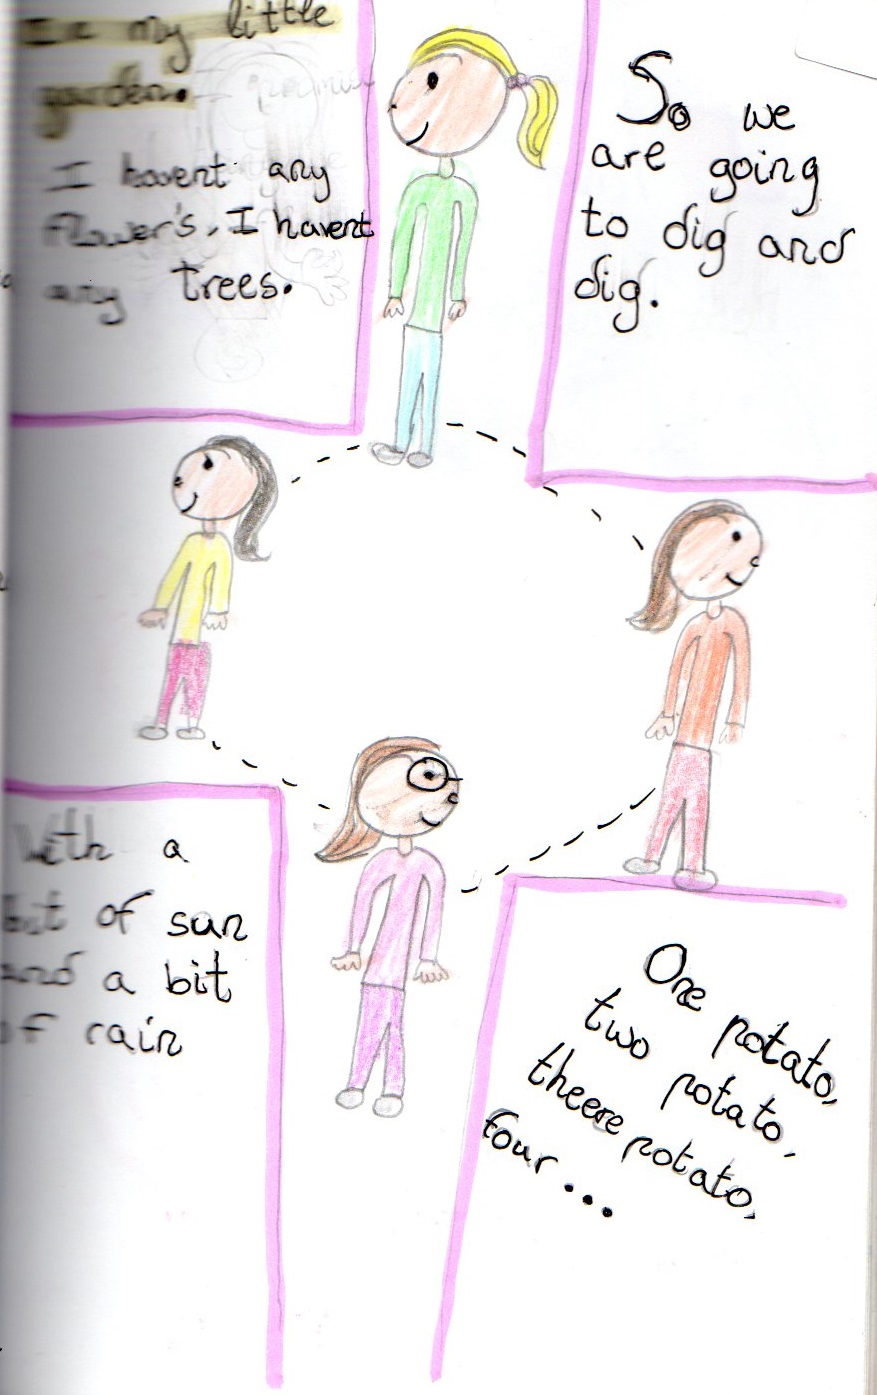 In my little
garden.
I havent any
flower's, I havent
any trees.
So we
are going
to dig and
dig.
With a
bit of sun
and a bit
of rain
One potato,
two potato,
theere potato,
four...